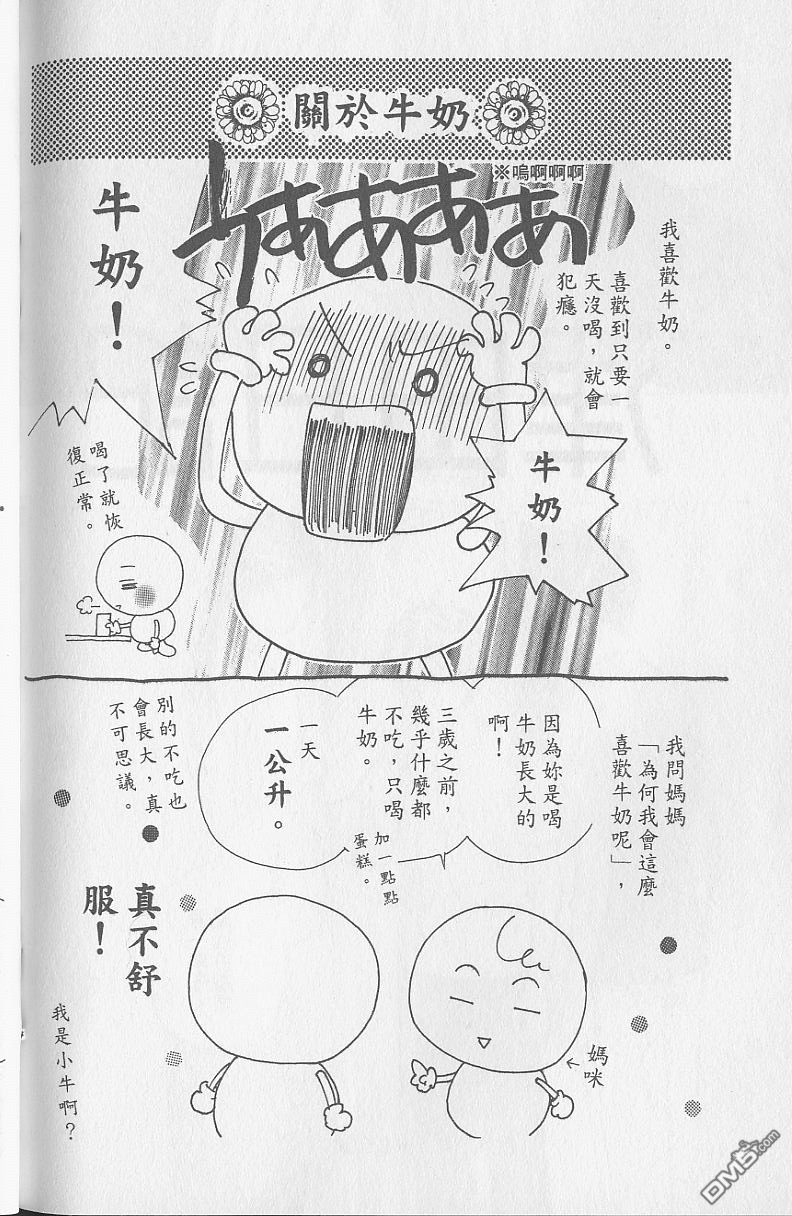 關於牛奶
うああああ
※嗚啊啊啊
我喜歡牛奶。
喜歡到只要一
天沒喝，就會
犯癮。
牛奶！
牛奶！
喝了就恢
復正常。
我問媽媽
「為何我會這麼
喜歡牛奶呢」，
因為妳是喝
牛奶長大的
啊！
三歲之前，
幾乎什麼都
不吃，只喝
牛奶。
加一點點
蛋糕。
一天
一公升。
別的不吃也
會長大，真
不可思議。
媽咪
真不舒
服！
我是小牛啊？
DM5.com